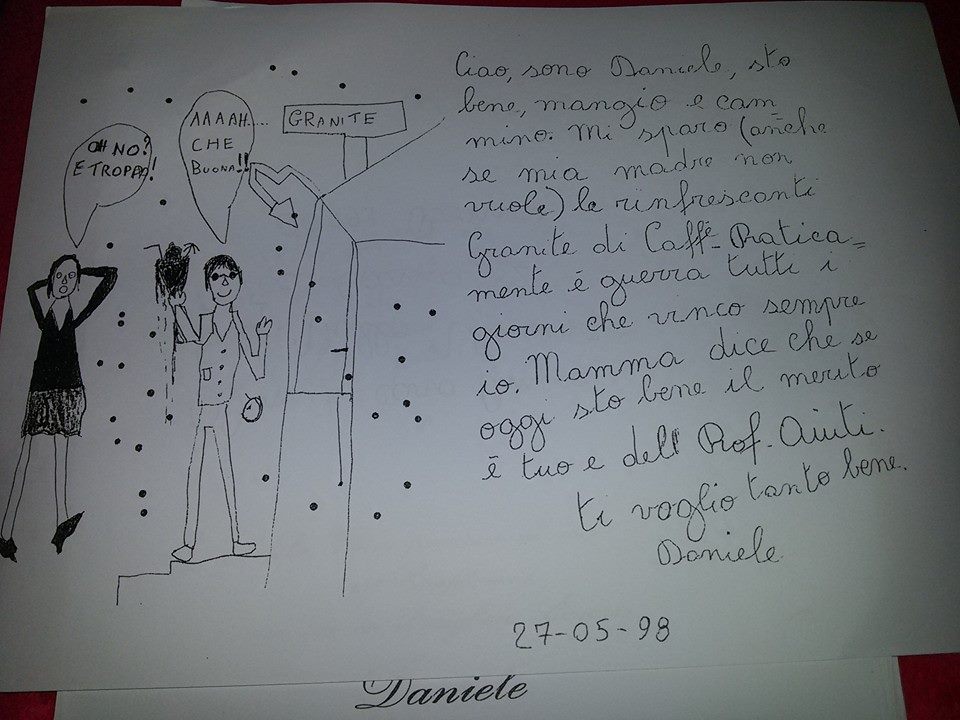 OH NO?
E TROPPA!
AAAAH....
CHE
BUONA!!
GRANITE
Ciao, sono Daniele, sto
bene, mangio e cam
mino. Mi sparo (anche
se mia madre non
vuole) le rinfrescanti
Granite di Caffè. Pratica=
mente è guerra tutti i
giorni che vinco sempre
io. Mamma dice che se
oggi sto bene il merito
è tuo e dell Prof. Aiuti.
ti voglio tanto bene.
Daniele
27-05-98
Daniele